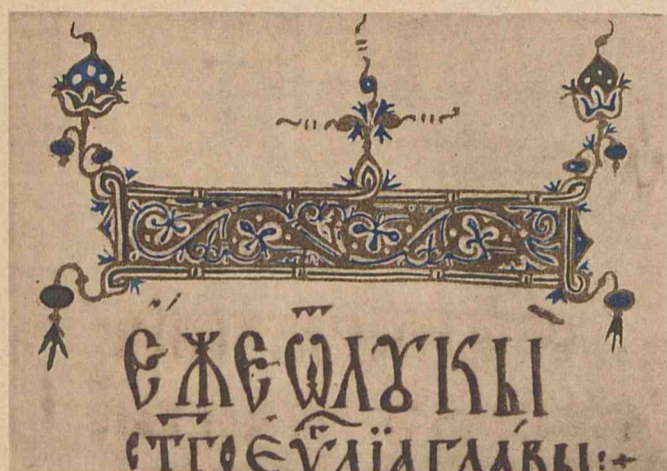 Е҆́же ѿ лꙋкы̀
ст҃го є҆ѵ҃лїа гла́вы:+